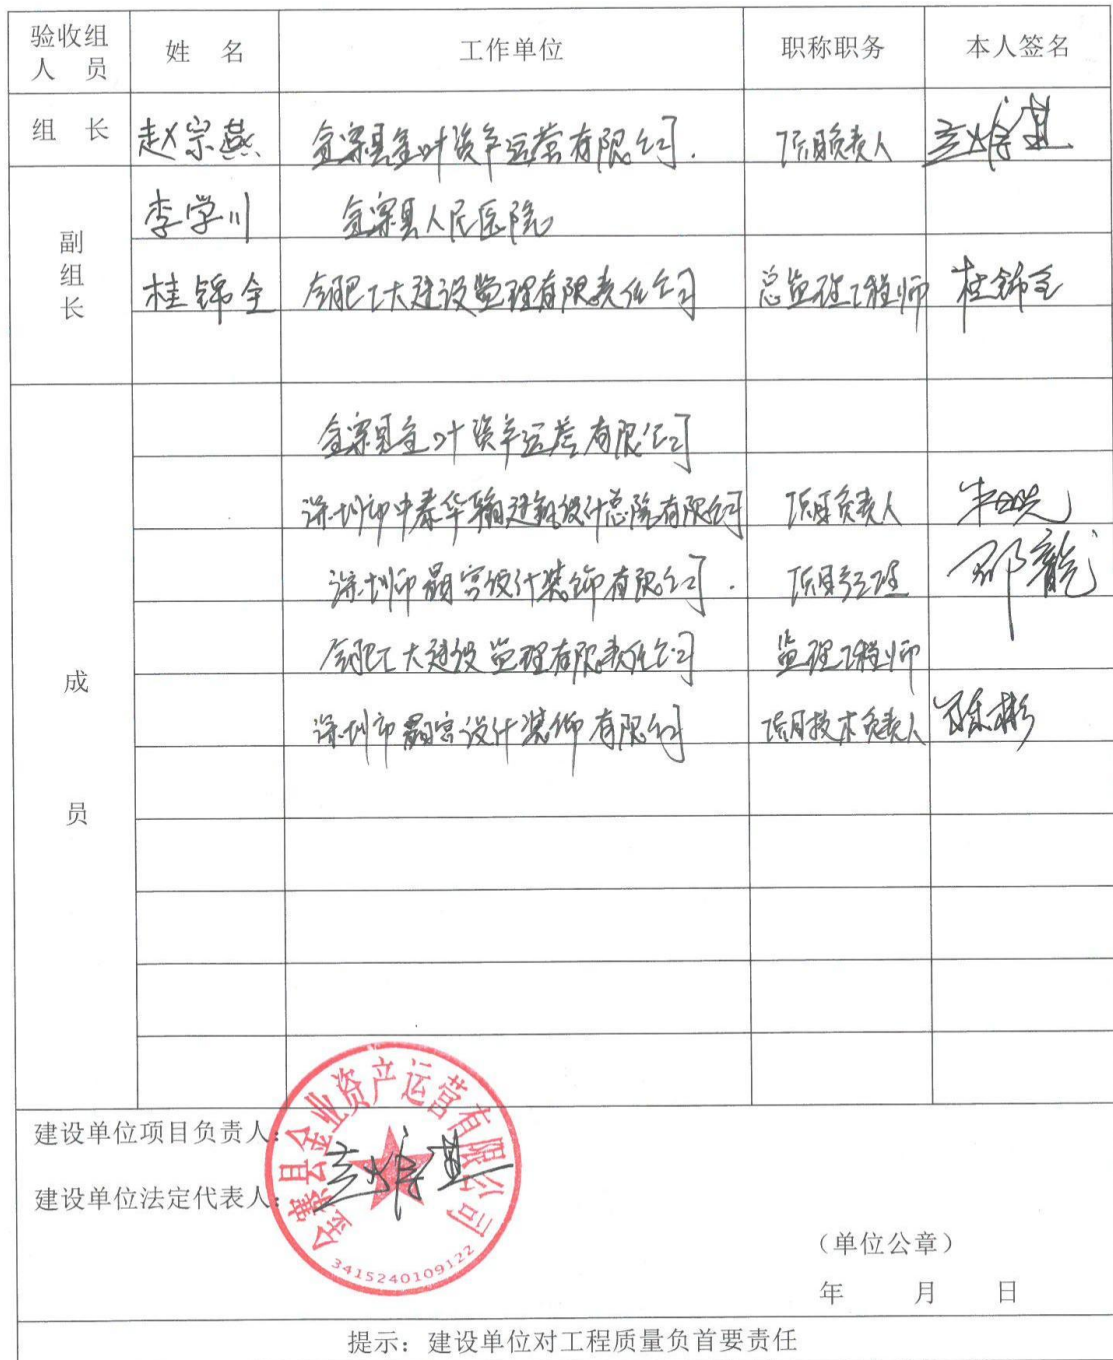 验收组人员 姓 名 工作单位 职称职务 本人签名
组 长 赵宗燕 金寨县金叶资产运营有限公司. 项目负责人
副组长 李学川 金寨县人民医院
桂锦全 合肥工大建设监理有限责任公司 总监理工程师 桂锦全
成员
金寨县金叶资产运营有限公司
深圳市中泰华翰建筑设计总院有限公司 项目负责人
深圳市晶宫设计装饰有限公司. 项目经理 邵龍
合肥工大建设监理有限责任公司 监理工程师
深圳市晶宫设计装饰有限公司 项目技术负责人 陈彬
建设单位项目负责人:
建设单位法定代表人:
金寨县金业资产运营有限公司
3415240109122
（单位公章）
年 月 日
提示：建设单位对工程质量负首要责任